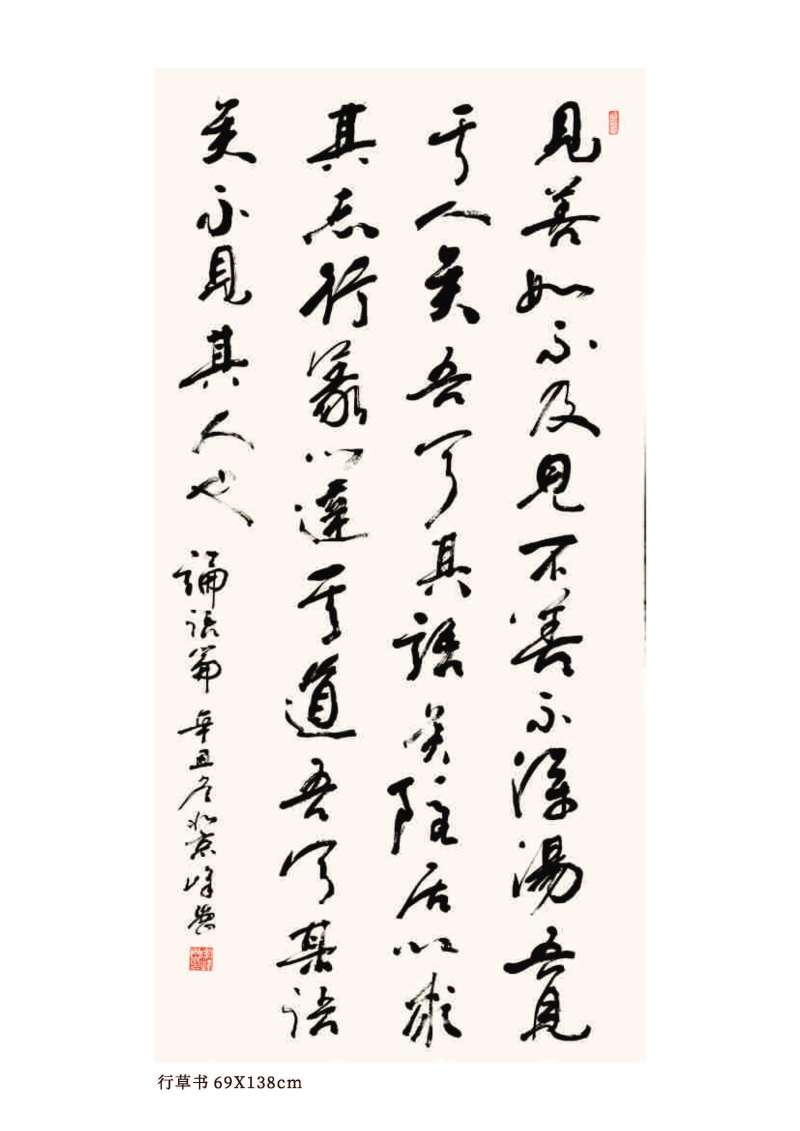 見善如不及見不善不深湯吾見
其人矣吾聞其語矣隱居以求
其志行義以達其道吾聞其語
矣不見其人也 論語篇 辛丑冬北京峰
行草书 69X138cm